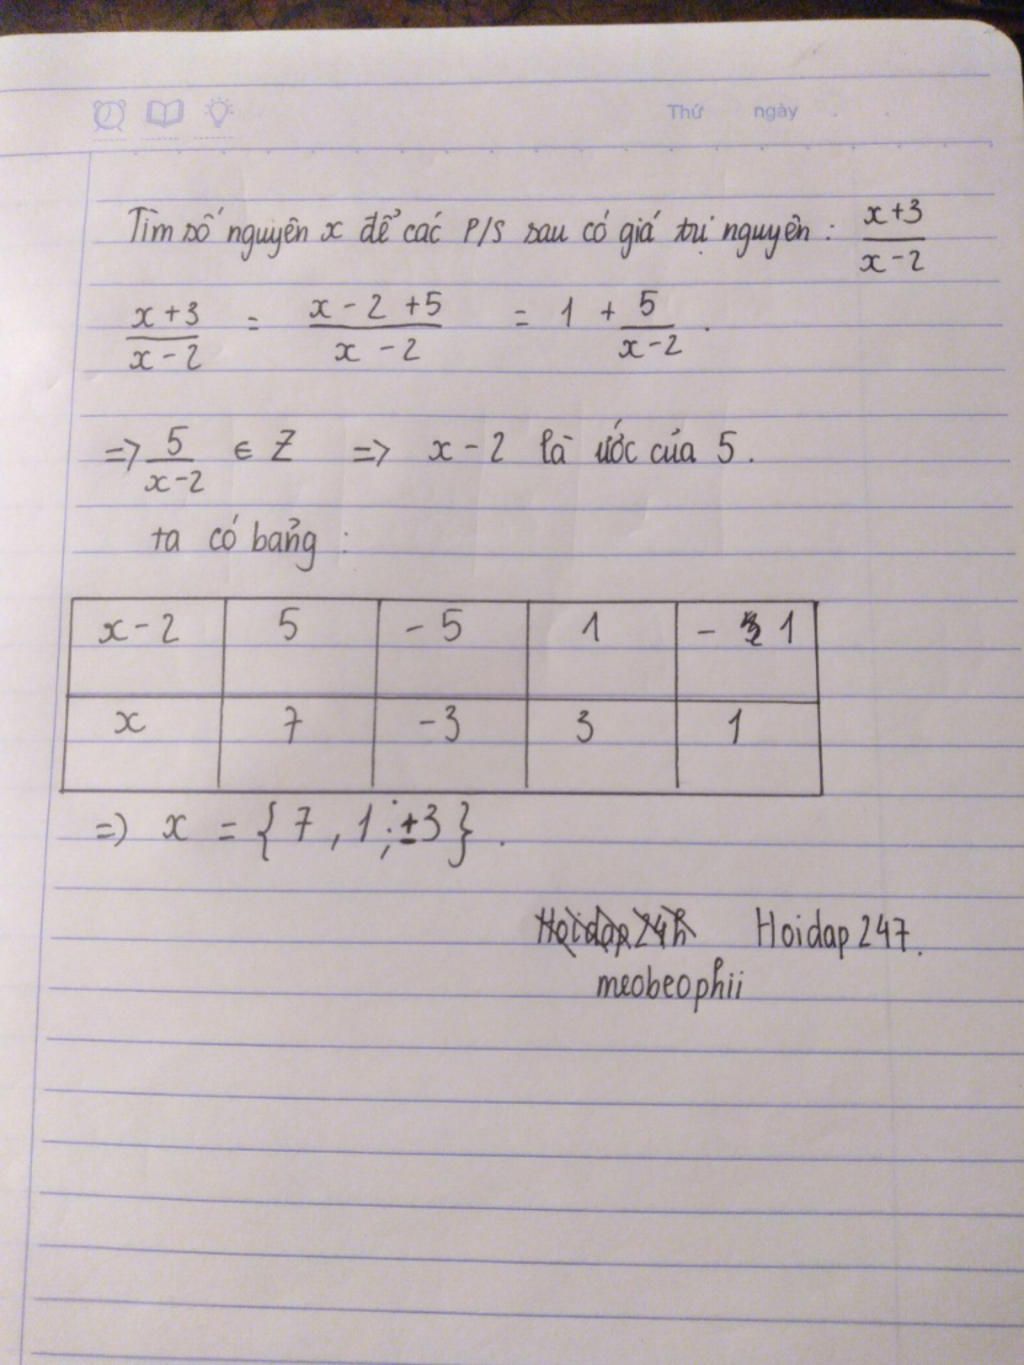 Thứ ngày
Tìm số nguyên x để các P/S sau có giá trị nguyên: (x+3)/(x-2)
(x+3)/(x-2) = (x-2+5)/(x-2) = 1 + 5/(x-2).
=> 5/(x-2) ∈ Z => x-2 là ước của 5.
ta có bảng:
x-2 5 -5 1 -1
x 7 -3 3 1
=> x = {7, 1; ±3}.
Hoidap 24h Hoidap 247.
meobeophii